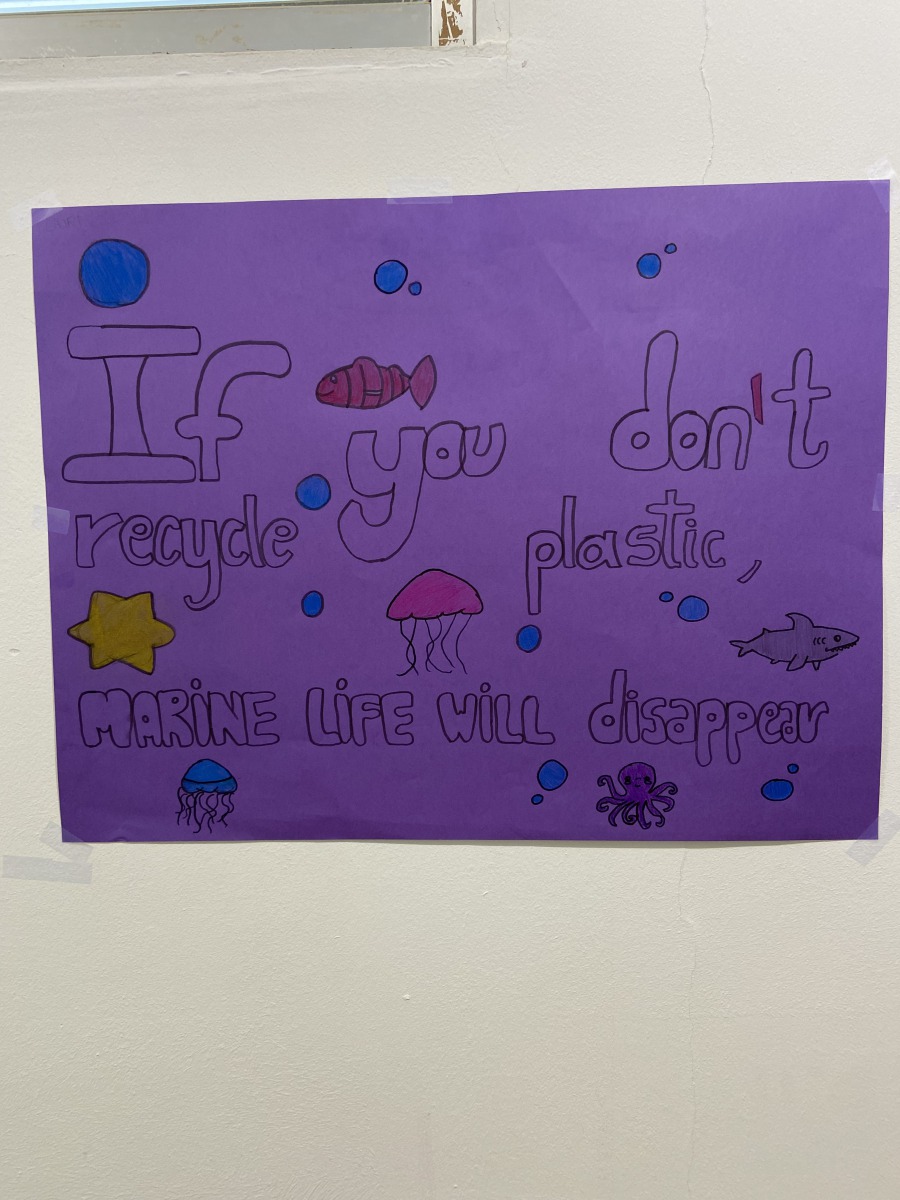 If you don't
recycle plastic,
MARiNE LiFE WiLL disappear